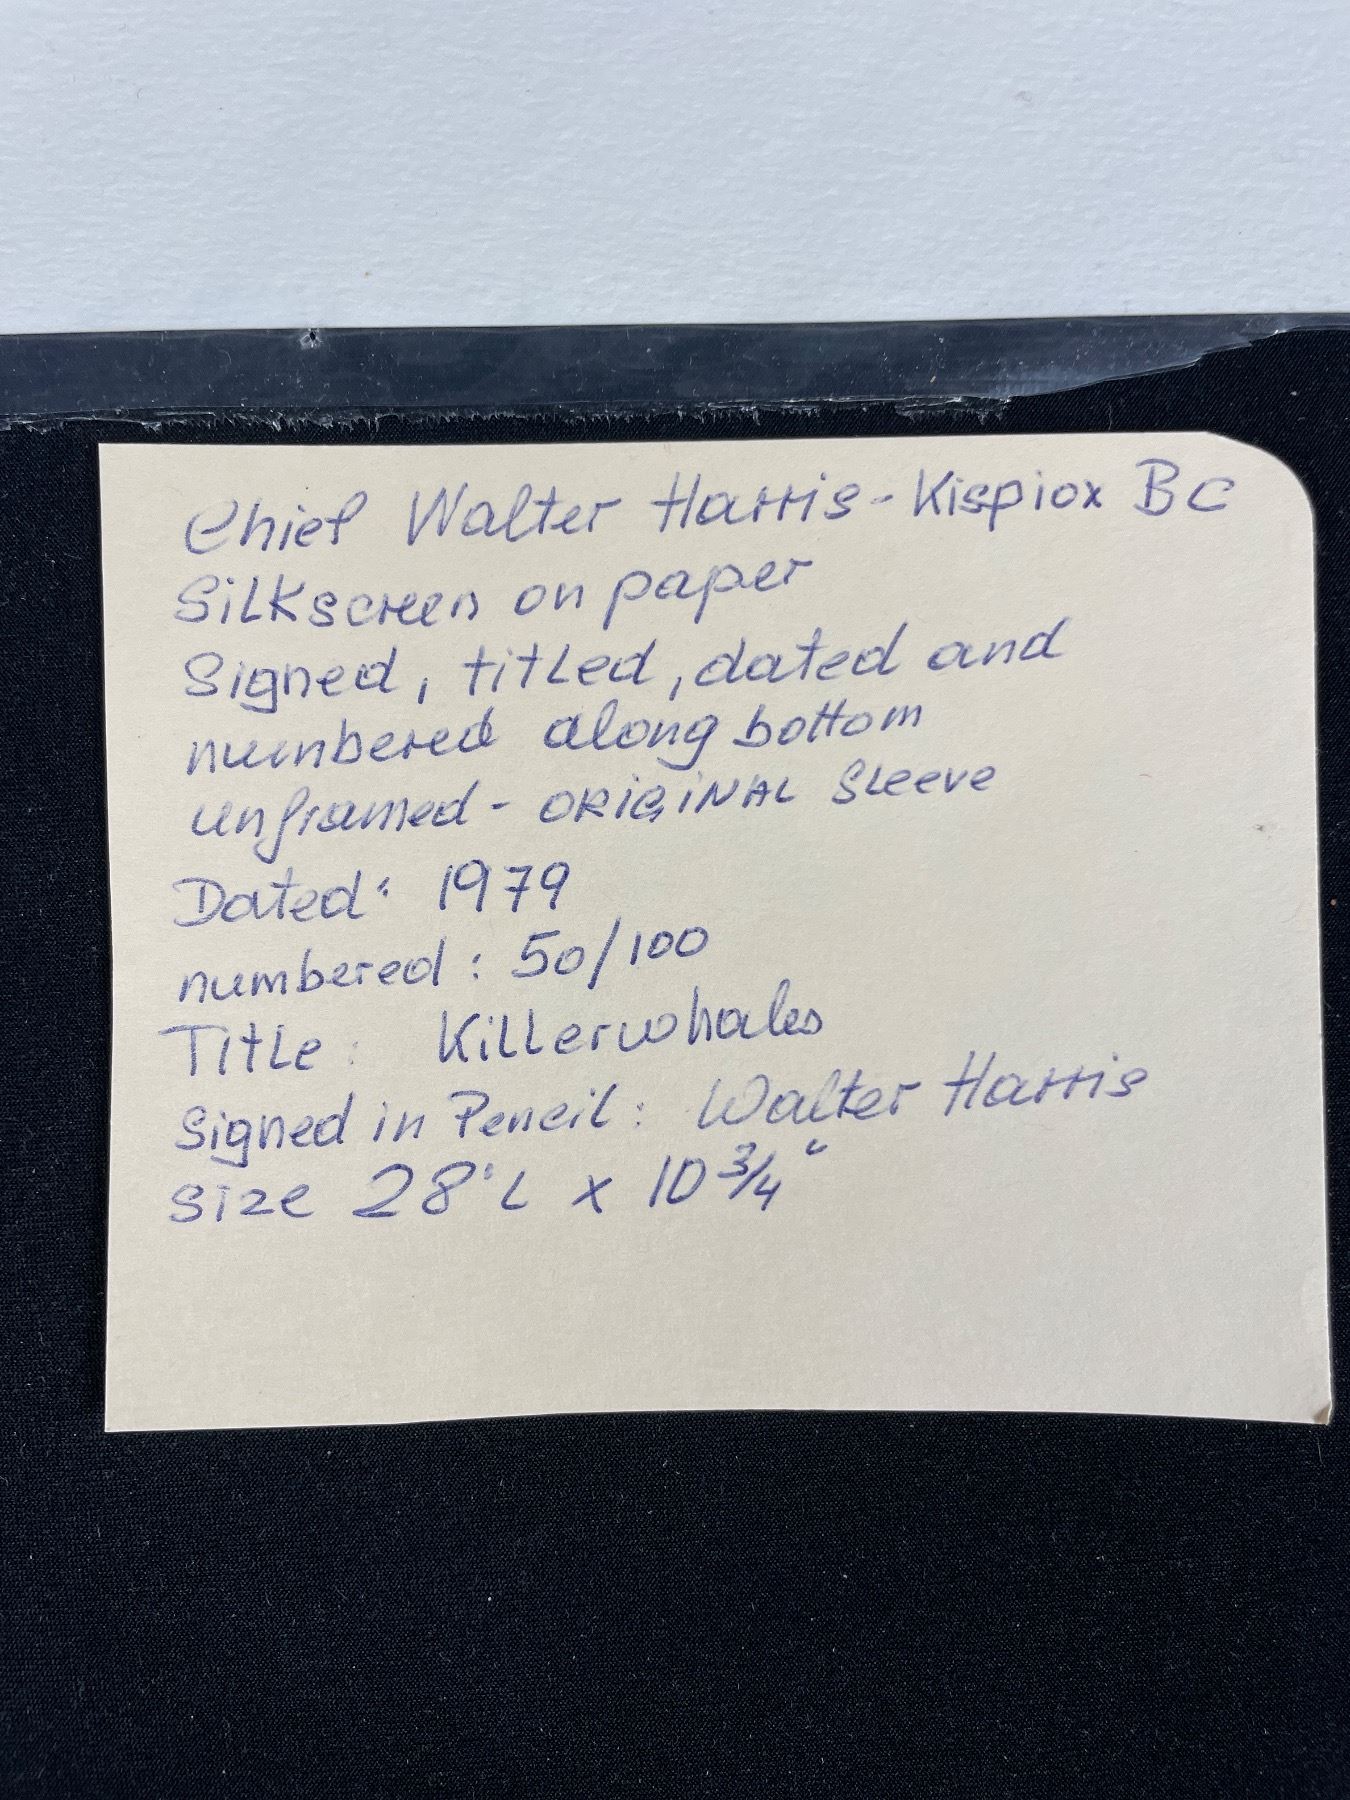 Chief Walter Harris - Kispiox BC
Silkscreen on paper
Signed, titled, dated and
numbered along bottom
unframed - ORIGINAL Sleeve
Dated: 1979
numbered: 50/100
Title: Killerwhales
Signed in Pencil: Walter Harris
Size 28" L x 10 3/4"